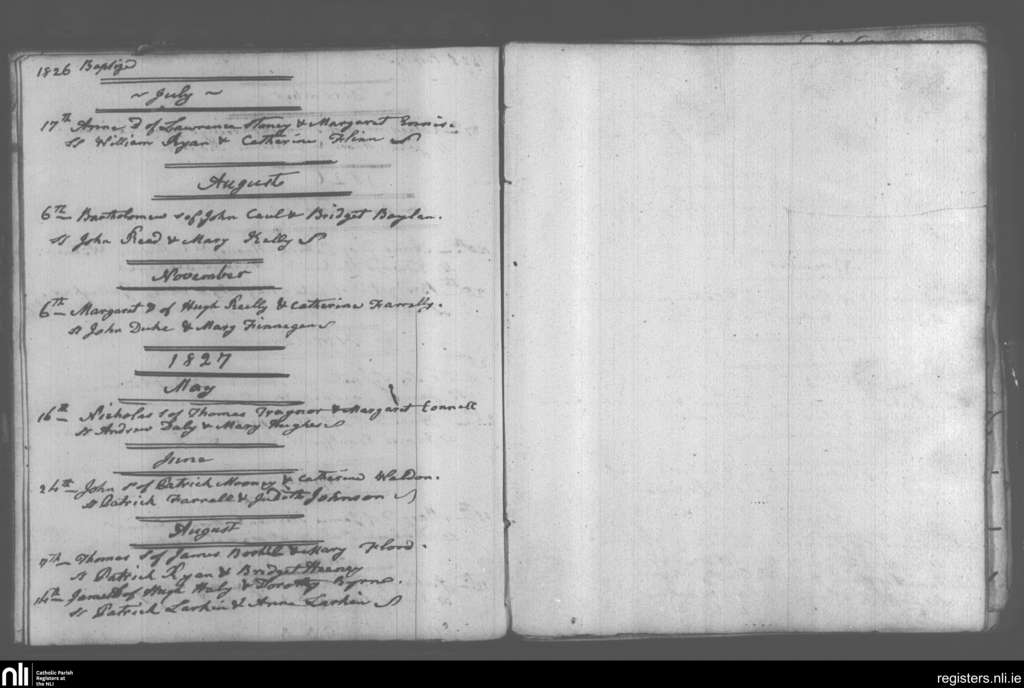 1826 Baptizd
~ July ~
17th Anne D of Lawrence & Margaret Ennis.
Ss William Ryan & Catherine Flinn
August
6th Bartholomew s of John Caul & Bridget Boylan.
Ss John Reed & Mary Kelly
November
6th Margaret D of Hugh Reilly & Catherine Farrelly.
Ss John Duke & Mary Finnegan
1827
May
16th Nicholas s of Thomas Traynor & Margaret Connell
Ss Andrew Daly & Mary Hughes
June
24th John s of Patrick Mooney & Catherine Waldon.
Ss Patrick Farrell & Judith Johnson
August
7th Thomas S of James & Mary Flood.
Ss Patrick Ryan & Bridget Heaney
14th of Hugh & Dorothy Byrne.
Ss Patrick Larkin & Anne Larkin
nli
Catholic Parish
Registers at
the NLI
registers.nli.ie